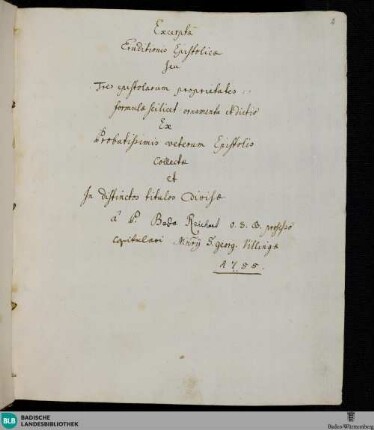 2
Excerpta
Eruditionis Epistolicæ
Seu
Tres epistolarum proprietates
formula scilicet ornamenta et dictio
Ex
Probatissimis veterum Epistolis
Collectæ
et
In distinctos titulos Divisæ
â P. Beda Reichert O.S.B. professo
capitulari Mrÿ S. georg. Villingæ
1788.
BLB
BADISCHE
LANDESBIBLIOTHEK
Baden-Württemberg